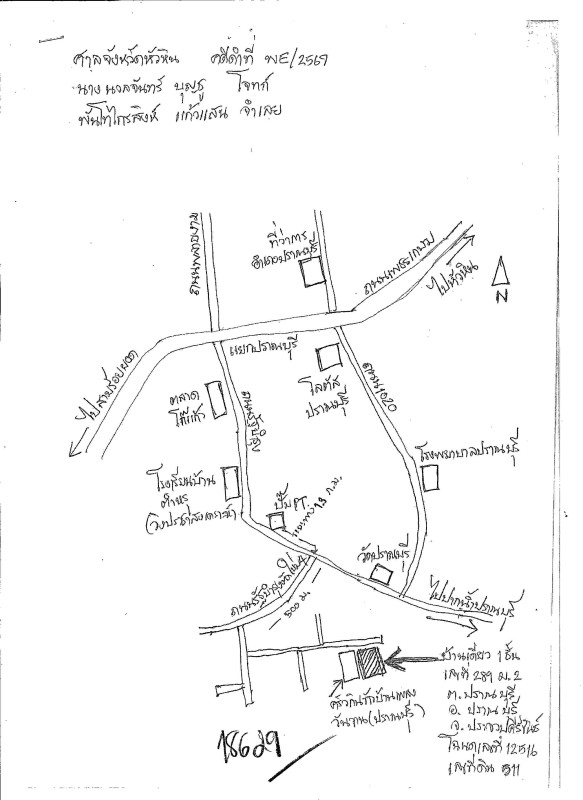 ศาลจังหวัดหัวหิน คดีดำที่ พE/2569
นาง นวลจันทร์ บุญชู โจทก์
พันโทไกรสิงห์ แก้วแสน จำเลย
ถนนพลายงาม
ที่ว่าการ
อำเภอปราณบุรี
ถนนเพชรเกษม
ไปหัวหิน
N
แยกปราณบุรี
ไปสามร้อยยอด
ตลาด
โต้แก้ว
โลตัส
ปราณบุรี
ถนน1020
ถนนรัฐบำรุง
โรงพยาบาลปราณบุรี
โรงเรียนบ้าน
(วังประชาสงเคราะห์)
ปั๊ม PT.
ระยะทาง 1.3 ก.ม.
วัดปราณบุรี
ไปปากน้ำปราณบุรี
500 ม.
บ้านเดี่ยว 1 ชั้น
เลขที่ 289 ม.2
ต. ปราณบุรี
อ. ปราณบุรี
จ. ประจวบคีรีขันธ์
โฉนดเลขที่ 12516
เลขที่ดิน 511
ครัวกินทั่วบ้านเพลง
วันวาน(ปราณบุรี)
18629